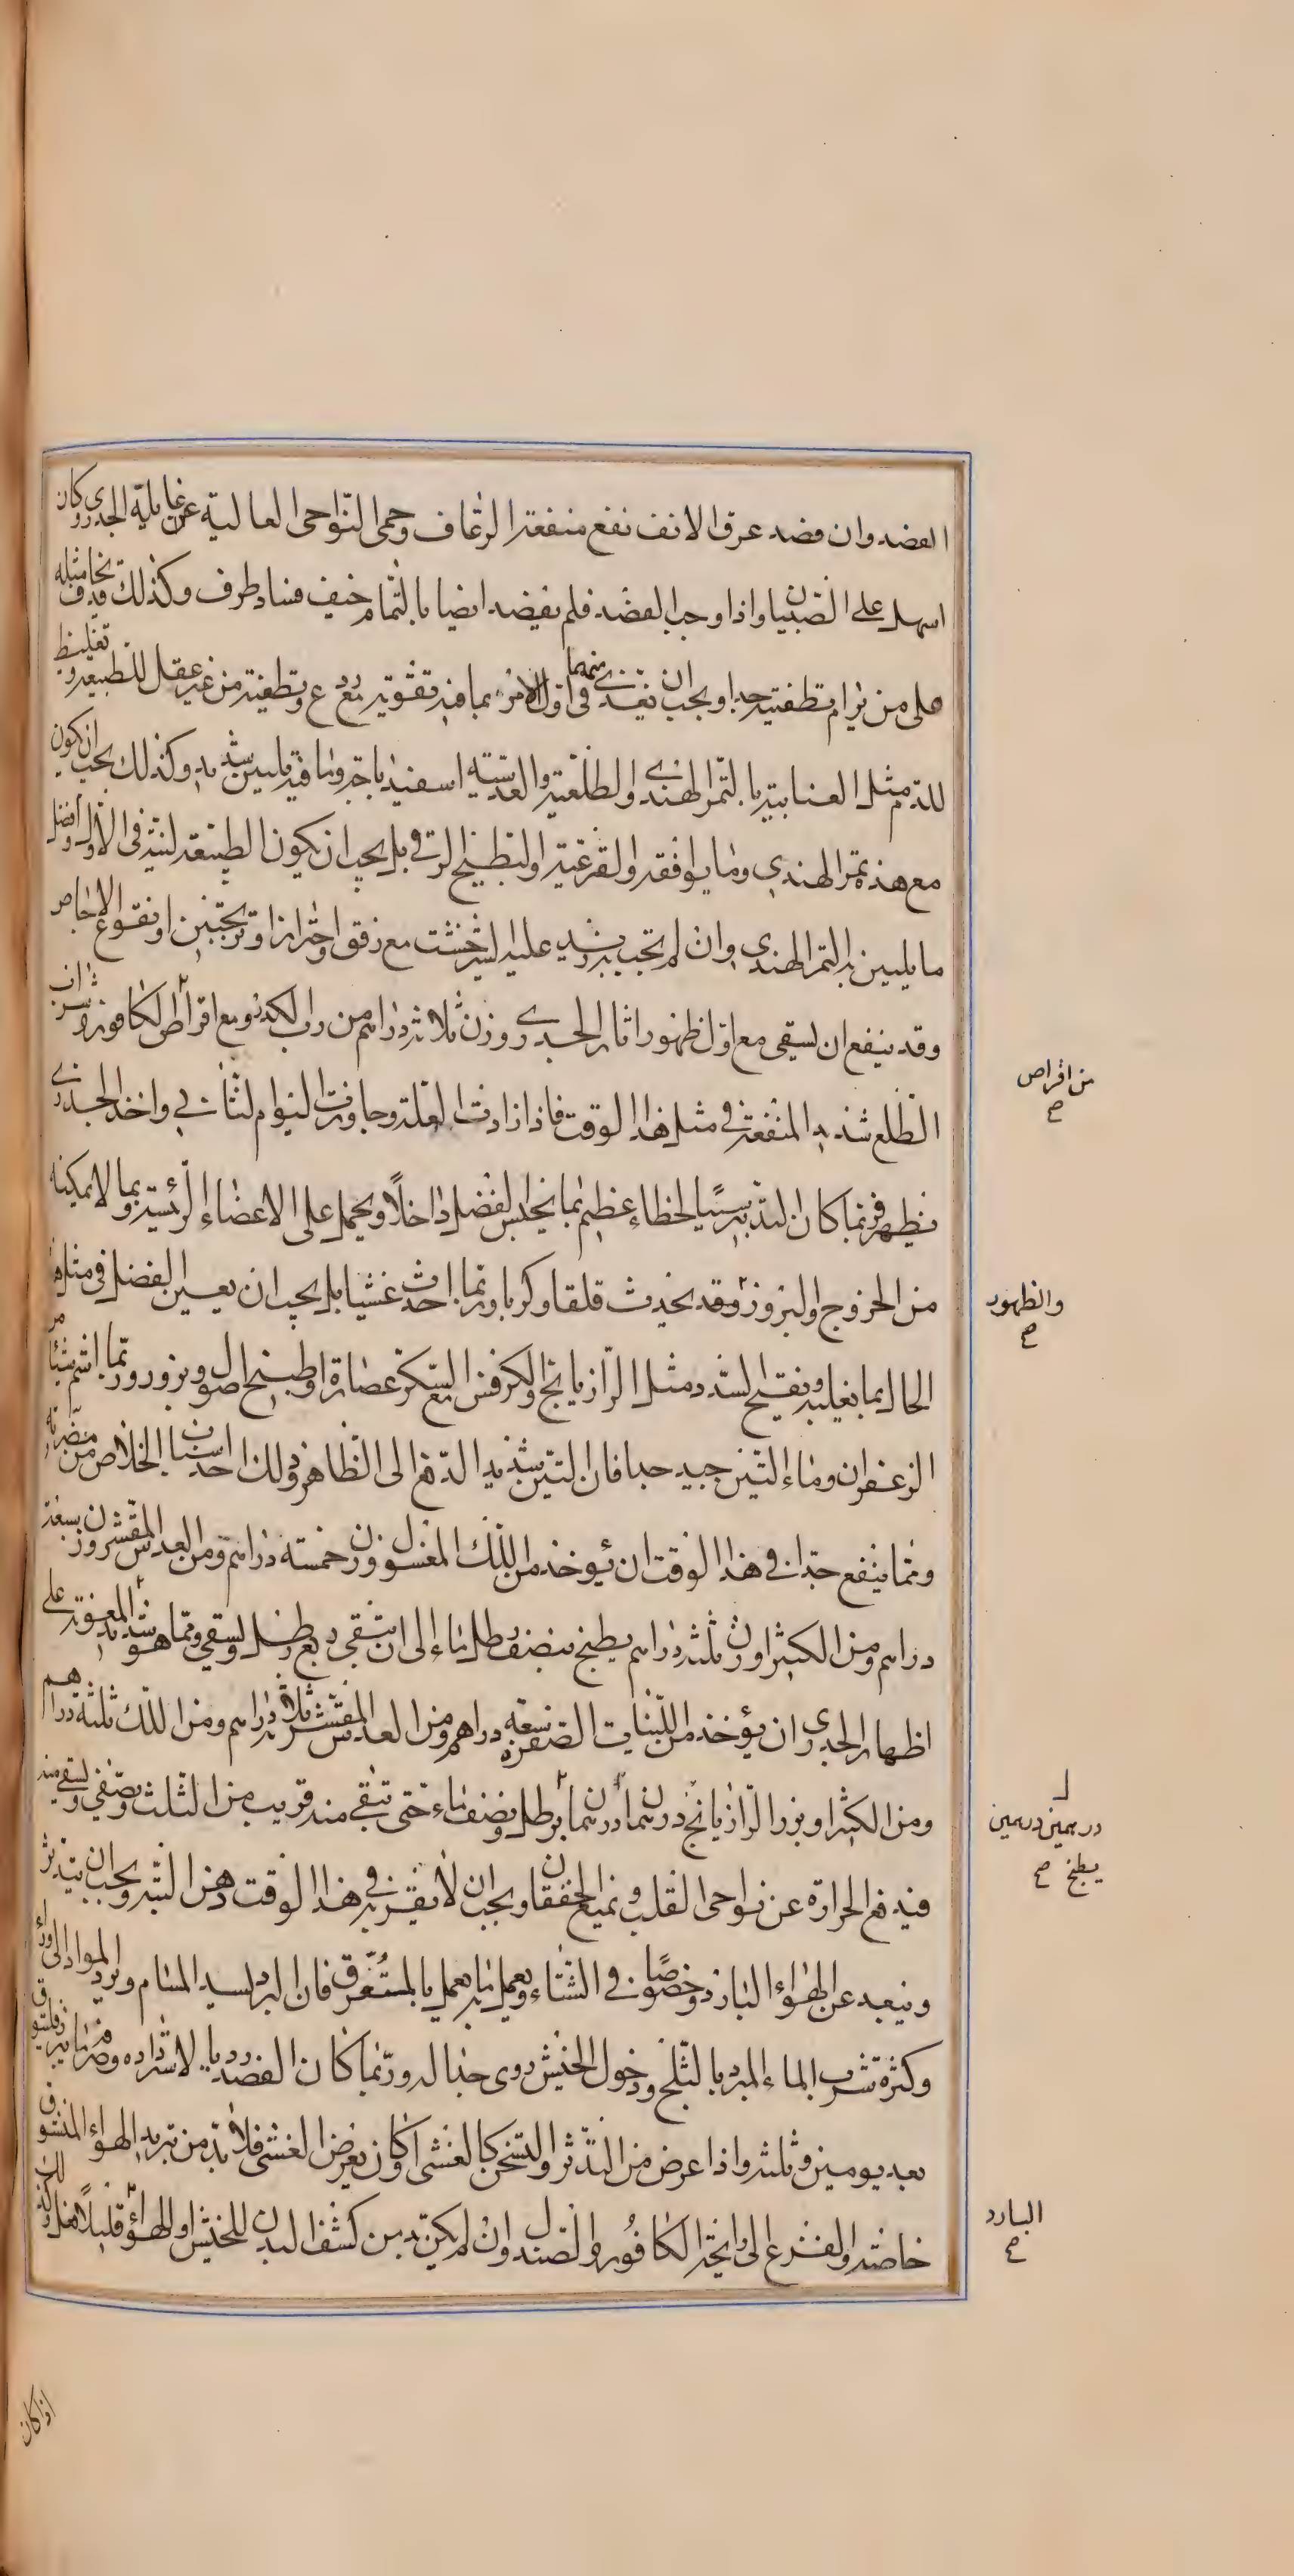 الفصد وان فصد عرق الانف نفع منفعة الرعاف وحمى النواحى العالية عن غايلة الجدرى وكان
اسهل على الصبيان واذا وجب الفصد فلم يفصد ايضا بالتمام خيف فساد طرف وكذلك قد يخاف مثله
على من يرام تطفيته جدا ويجب ان يغذى فى اول الامر بما فيه تقوية مع ردع وتطفية من غير عقل للطبيعة وتغليظ
للدم مثل العنابية بالتمر الهندى والطلعية والعدسية اسفيذباجة وما فيه تليين شديد وكذلك يجب ان يكون
مع هذه تمر الهندى وما يوافقه والقرعية والبطيخ الرقى بل يجب ان يكون الطبيعة لينة فى الاول وافضل
ما يلين به التمر الهندى وان لم تجب يزيد عليه الشيرخشت مع رفق واحتراز او ترنجبين او نقوع الاجاص
وقد ينفع ان يسقى مع اول ظهور اثار الجدرى وزن ثلاثة دراهم من رب الكدر ومع اقراص الكافور وشراب
الطلع شديد المنفعة فى مثل هذا الوقت فاذا ازدادت العلة وجاوزت اليوم الثانى واخذ الجدرى
يظهر فربما كان التدبير سببا لخطاء عظيم بما يحبس الفضل داخلا ويحمل على الاعضاء الرئيسة وبما لا يمكنه
من الخروج والبروز وقد يحدث قلقا وكربا وربما احدث غشيا بل يجب ان يعين الفضل فى مثل هذا
الحال بما يغليه ويفتح السدد مثل الرازيانج والكرفس مع السكر عصارة او طبيخ اصول وبزور وربما اشم شيئا من
الزعفران وماء التين جيد جدا فان التين شديد الدفع الى الظاهر وذلك احد اسباب الخلاص من مضرته
ومما ينفع جدا فى هذا الوقت ان يوخذ من اللك المغسول وزن خمسة دراهم ومن العدس المقشر وزن سبعة
دراهم ومن الكثيرا وزن ثلثة دراهم يطبخ بنصف رطل ماء الى ان يبقى ربع رطل ويسقى ومما هو شديد المعونة على
اظهار الجدرى ان يؤخذ من التينات الصفر سبعة دراهم ومن العدس المقشر ثلاثة دراهم ومن اللك ثلثة دراهم
ومن الكثيرا وبزر الرازيانج درهمان درهمان برطل ونصف ماء حتى تبقى منه قريب من الثلث ويصفى ويسقى منه
فيدفع الحرارة عن نواحى القلب ويمنع الخفقان ويجب ان لا يقرب فى هذا الوقت دهن البتة ويجب ان يتدثر
ويبعد عن الهواء البارد وخصوصا فى الشتاء ويعمل ما يعمل بالمستعرق فان البرد يسد المسام ويرد المواد الى وراء
وكثرة شرب الماء المبرد بالثلج ودخول الخيش ردى جدا له وربما كان الفصد رديا لاسترداده
بعد يومين وثلثة واذا عرض من التدثر والتسخن كالغشى او كان يعرض الغشى فلا بد من تبريد الهواء المنشوق
خاصة والفزع الى رايحة الكافور والصندل وان لم يكن بد من كشف البدن للخيش او الهواء قليلا فعل وذلك
من اقراص
صح
والظهور
صح
درهمين درهمين
يطبخ صح
البارد
صح
اذا كان